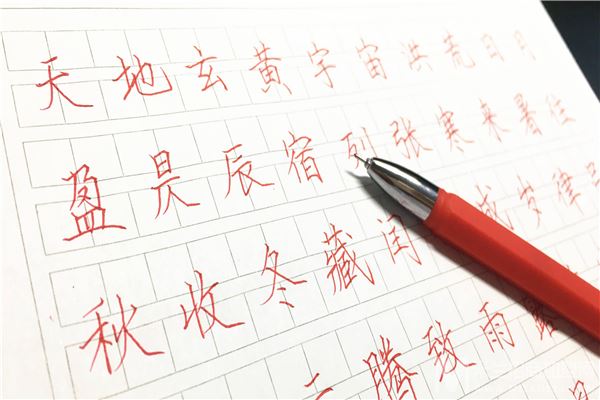 天地玄黄宇宙洪荒日月
盈昃辰宿列张寒来暑往
秋收冬藏闰成岁律吕
云腾致雨露